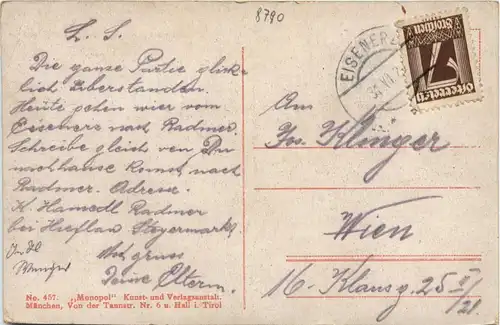 8790
L. S.
Die ganze Partie glück-
lich überstanden.
Heute gehen wier vom
Eisenerz nach Radmer.
Schreibe gleich wen Du
nachhause komst, nach
Radmer. Adresse.
K. Radmer
bei Hieflau Steyermark.
gruss
Deine Eltern.
EISENERZ
Österreich
Groschen
7
An
Jos. Klinger
Wien
25
No. 457. „Monopol" Kunst- und Verlagsanstalt.
München, Von der Tannstr. Nr. 6 u. Hall i. Tirol